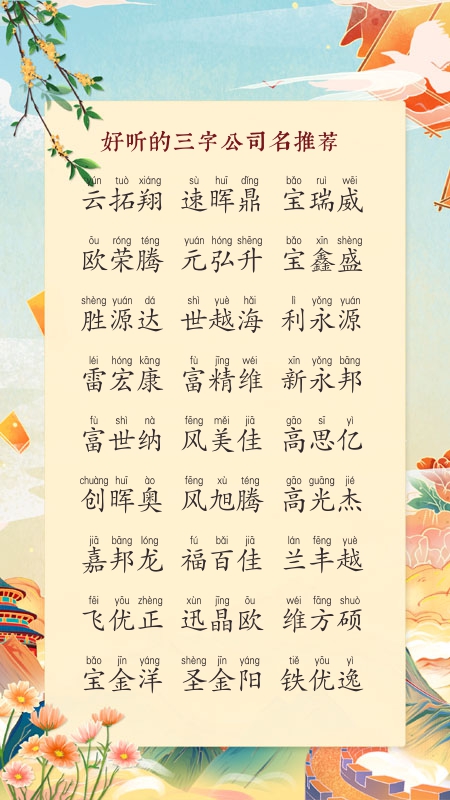 好听的三字公司名推荐
yún tuò xiáng sù huī dǐng bǎo ruì wēi
云拓翔 速晖鼎 宝瑞威
ōu róng téng yuán hóng shēng bǎo xīn shèng
欧荣腾 元弘升 宝鑫盛
shèng yuán dá shì yuè hǎi lì yǒng yuán
胜源达 世越海 利永源
léi hóng kāng fù jīng wéi xīn yǒng bāng
雷宏康 富精维 新永邦
fù shì nà fēng měi jiā gāo sī yì
富世纳 风美佳 高思亿
chuàng huī ào fēng xù téng gāo guāng jié
创晖奥 风旭腾 高光杰
jiā bāng lóng fú bǎi jiā lán fēng yuè
嘉邦龙 福百佳 兰丰越
fēi yōu zhèng xùn jīng ōu wéi fāng shuò
飞优正 迅晶欧 维方硕
bǎo jīn yáng shèng jīn yáng tiě yōu yì
宝金洋 圣金阳 铁优逸